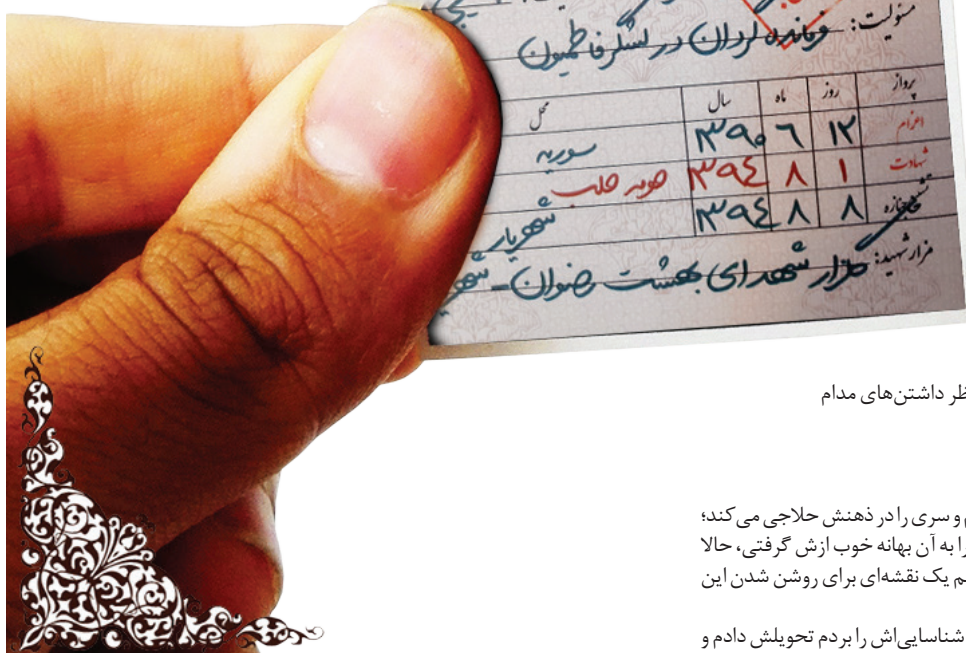 مسئولیت: فرمانده گردان در لشکر فاطمیون
پرواز روز ماه سال محل
اعزام ۱۲ ۶ ۱۳۹۰ سوریه
شهادت ۱ ۸ ۱۳۹۴ حومه حلب
تشییع جنازه ۸ ۸ ۱۳۹۴ شهریار
مزار شهید: گلزار شهدای بهشت رضوان - شهر
ظر داشتن‌های مدام
م و سری را در ذهنش حلاجی می‌کند؛
را به آن بهانه خوب ازش گرفتی، حالا
م یک نقشه‌ای برای روشن شدن این
شناسایی‌اش را بردم تحویلش دادم و